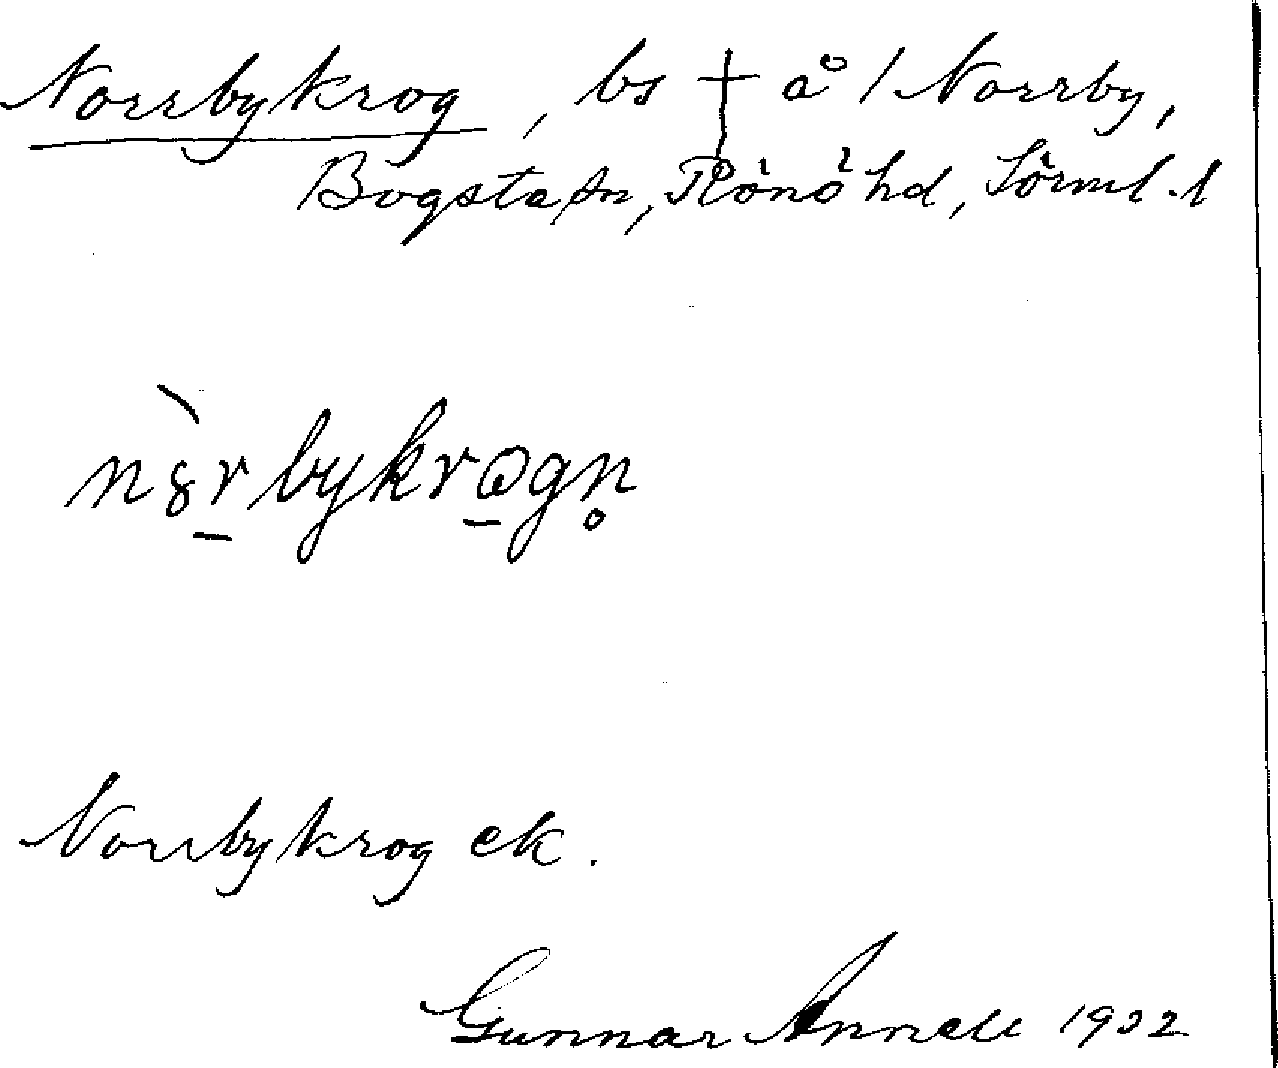 Norrbykrog, bs † å / Norrby,
Bogsta sn, Rönö hd, Sörml. l
nȣ̀r̠bykrω̠gn̥
Norrbykrog ek.
Gunnar Annell 1932